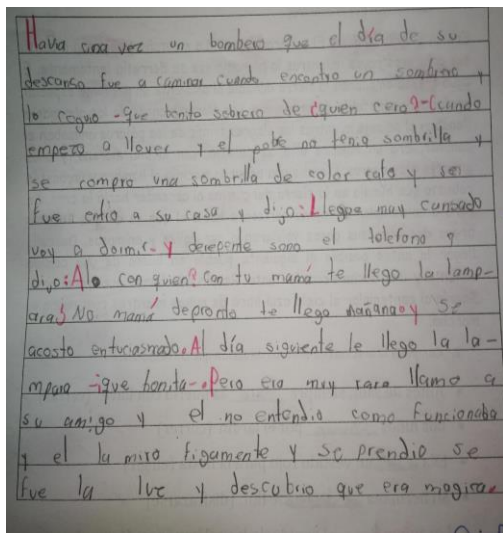 Havia una vez un bombero que el día de su
descanso fue a caminar cuando encontro un sombrero y
lo coguio -que bonito sobrero de ¿quien cera?-Ccuando
empezo a llover y el pobe no tenia sombrilla y
se compro una sombrilla de color cafe y se
fue entro a su casa y dijo:Llegue muy cansado
voy a dormir-y derepente sono el telefono y
dijo:Alo con quien?Con tu mamá te llego la lamp-
ara? No mamá depronto te llega mañana y se
acosto entuciasmado.Al día siguiente le llego la la-
mpara -¡que bonita-.Pero era muy rara llamo a
su amigo y el no entendio como funcionaba
y el la miro figamente y se prendio se
fue la luz y descubrio que era magica.